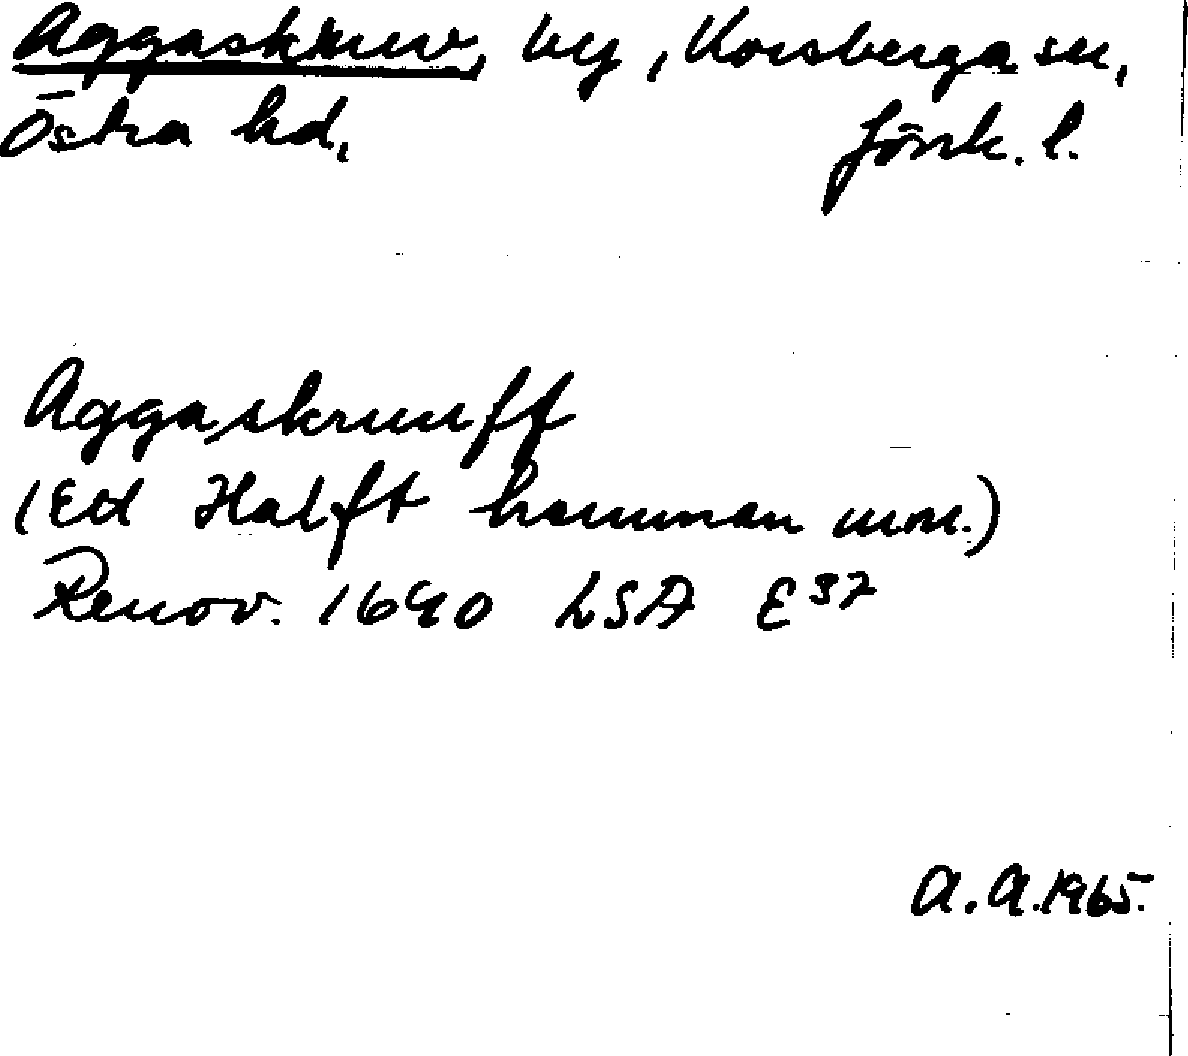 Aggaskruv, by, Korsberga sn,
Östra hd, Jönk. l.
Aggaskruuff
(Ett Halft hemman mm.)
Renov. 1640 LSA E 37
A.A. 1965.